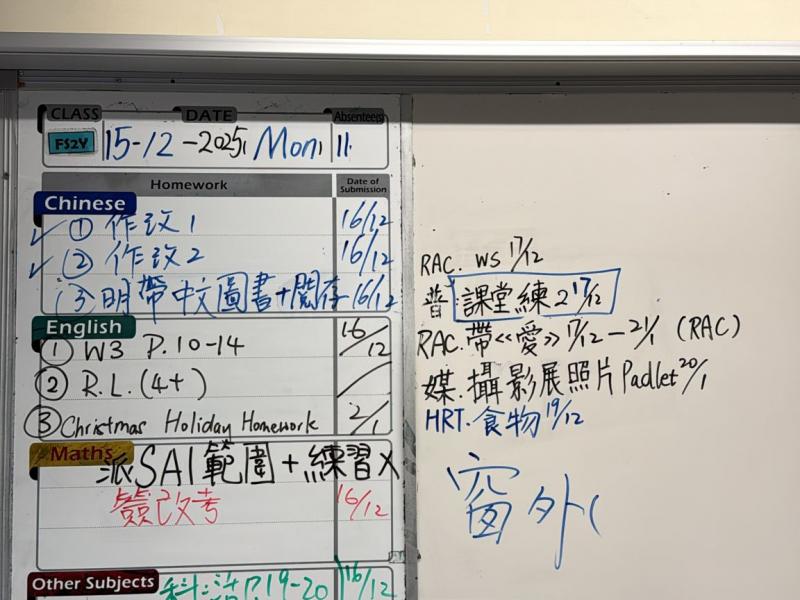 CLASS DATE Absentee(s)
FS2Y 15-12-2025, Mon, 11.
Homework Date of Submission
Chinese
① 作改1 16/12
② 作改2 16/12
③ 明帶中文圖書+閱存 16/12
English
① W3 P.10-14 16/12
② R.L.(4+)
③ Christmas Holiday Homework 2/1
Maths
派SA1範圍+練習X
簽改考 16/12
Other Subjects
科:活P.19-20 16/12
RAC. WS 17/12
普:課堂練2 17/12
RAC.帶《愛》17/12-21/1 (RAC)
媒.攝影展照片Padlet 20/1
HRT.食物 19/12
窗外(